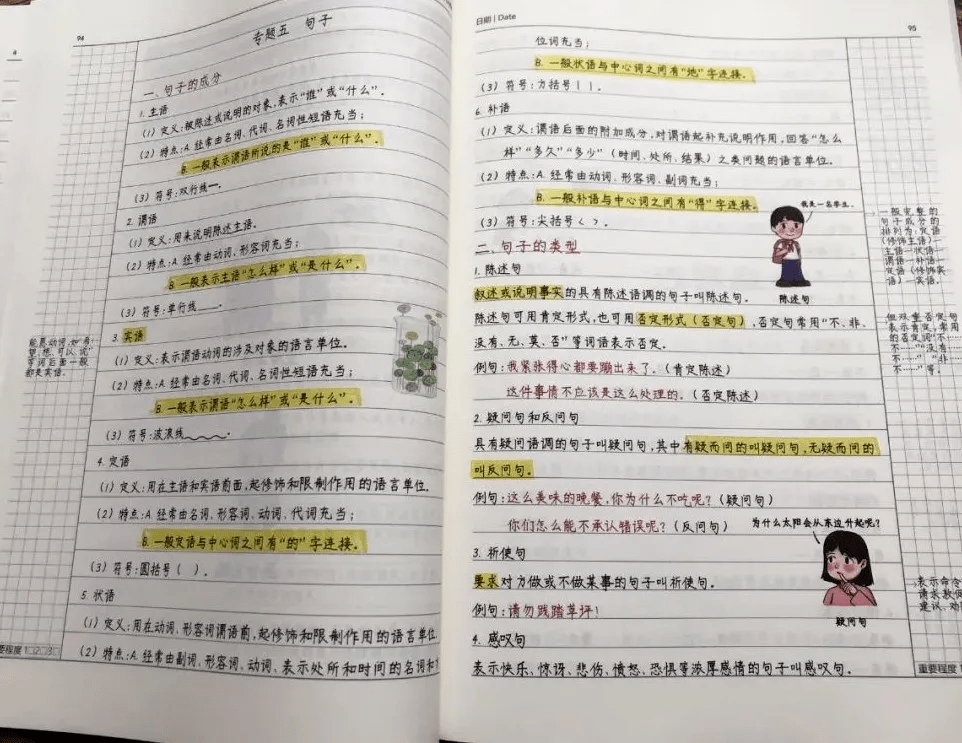 94
专题五 句子
一、句子的成分
1. 主语
(1) 定义:被陈述或说明的对象,表示“谁”或“什么”.
(2) 特点:A. 经常由名词、代词、名词性短语充当;
B. 一般表示谓语所说的是“谁”或“什么”.
(3) 符号:双行线═.
2. 谓语
(1) 定义:用来说明陈述主语.
(2) 特点:A. 经常由动词、形容词充当;
B. 一般表示主语“怎么样”或“是什么”.
(3) 符号:单行线——.
3. 宾语
(1) 定义:表示谓语动词的涉及对象的语言单位.
(2) 特点:A. 经常由名词、代词、名词性短语充当;
B. 一般表示谓语“怎么样”或“是什么”.
(3) 符号:波浪线﹏﹏.
能愿动词,如“希
望、想、可以、说”
等词后面一般
都是宾语.
4. 定语
(1) 定义:用在主语和宾语前面,起修饰和限制作用的语言单位.
(2) 特点:A. 经常由名词、形容词、动词、代词充当;
B. 一般定语与中心词之间有“的”字连接.
(3) 符号:圆括号( ).
5. 状语
(1) 定义:用在动词、形容词谓语前,起修饰和限制作用的语言单位.
(2) 特点:A. 经常由副词、形容词、动词、表示处所和时间的名词和方
要程度 1□2□3□
日期 | Date
95
位词充当;
B. 一般状语与中心词之间有“地”字连接.
(3) 符号:方括号[ ].
6. 补语
(1) 定义:谓语后面的附加成分,对谓语起补充说明作用,回答“怎么
样”“多久”“多少”(时间、处所、结果)之类问题的语言单位.
(2) 特点:A. 经常由动词、形容词、副词充当;
B. 一般补语与中心词之间有“得”字连接.
(3) 符号:尖括号〈 〉.
我是一名学生.
陈述句
一般完整的
句子成分的
排列为:定语
(修饰主语)—
主语—状语—
谓语—补语—
定语(修饰宾
语)—宾语.
二、句子的类型
1. 陈述句
叙述或说明事实的具有陈述语调的句子叫陈述句.
陈述句可用肯定形式,也可用否定形式(否定句),否定句常用“不、非、
没有、无、莫、否”等词语表示否定.
例句:我紧张得心都要蹦出来了.(肯定陈述)
这件事情不应该是这么处理的.(否定陈述)
但双重否定句
表示肯定,常用
的否定词“不……
不……”“没有……
不……”“非……
不……”等.
2. 疑问句和反问句
具有疑问语调的句子叫疑问句,其中有疑而问的叫疑问句,无疑而问的
叫反问句.
例句:这么美味的晚餐,你为什么不吃呢?(疑问句)
你们怎么能不承认错误呢?(反问句)
为什么太阳会从东边升起呢?
疑问句
3. 祈使句
要求对方做或不做某事的句子叫祈使句.
例句:请勿践踏草坪!
表示命令、
请求、敦促
建议、劝
4. 感叹句
表示快乐、惊讶、悲伤、愤怒、恐惧等浓厚感情的句子叫感叹句.
重要程度 1